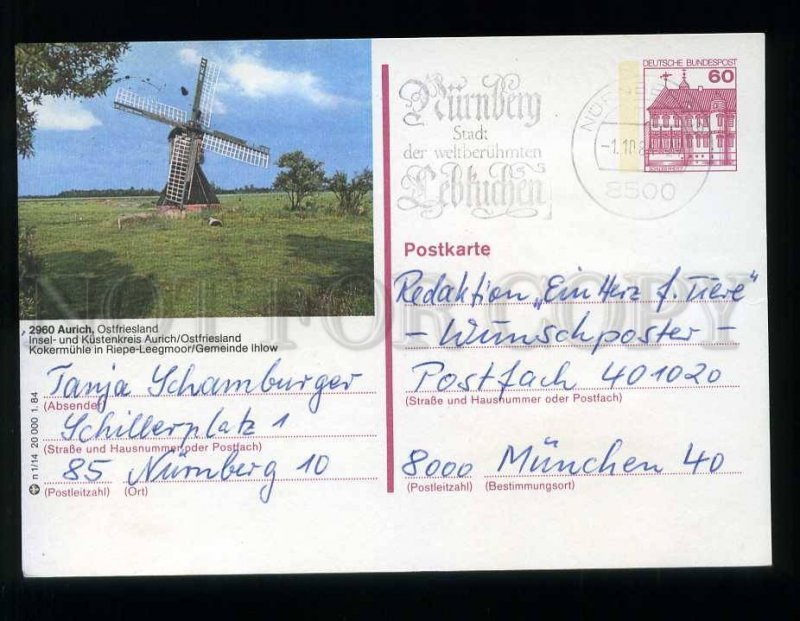 Nürnberg
Stadt
der weltberühmten
Lebkuchen
8500
DEUTSCHE BUNDESPOST
60
Postkarte
Redaktion „Ein Herz f. Tiere"
- Wunschposter -
Postfach 401020
(Straße und Hausnummer oder Postfach)
8000 München 40
(Postleitzahl) (Bestimmungsort)
2960 Aurich, Ostfriesland
Insel- und Küstenkreis Aurich/Ostfriesland
Kokermühle in Riepe-Leegmoor/Gemeinde Ihlow
Tanja Schamburger
(Absender)
Schillerplatz 1
(Straße und Hausnummer oder Postfach)
85 Nürnberg 10
(Postleitzahl) (Ort)
n 1/14 20 000 1. 84
NOT FOR COPY